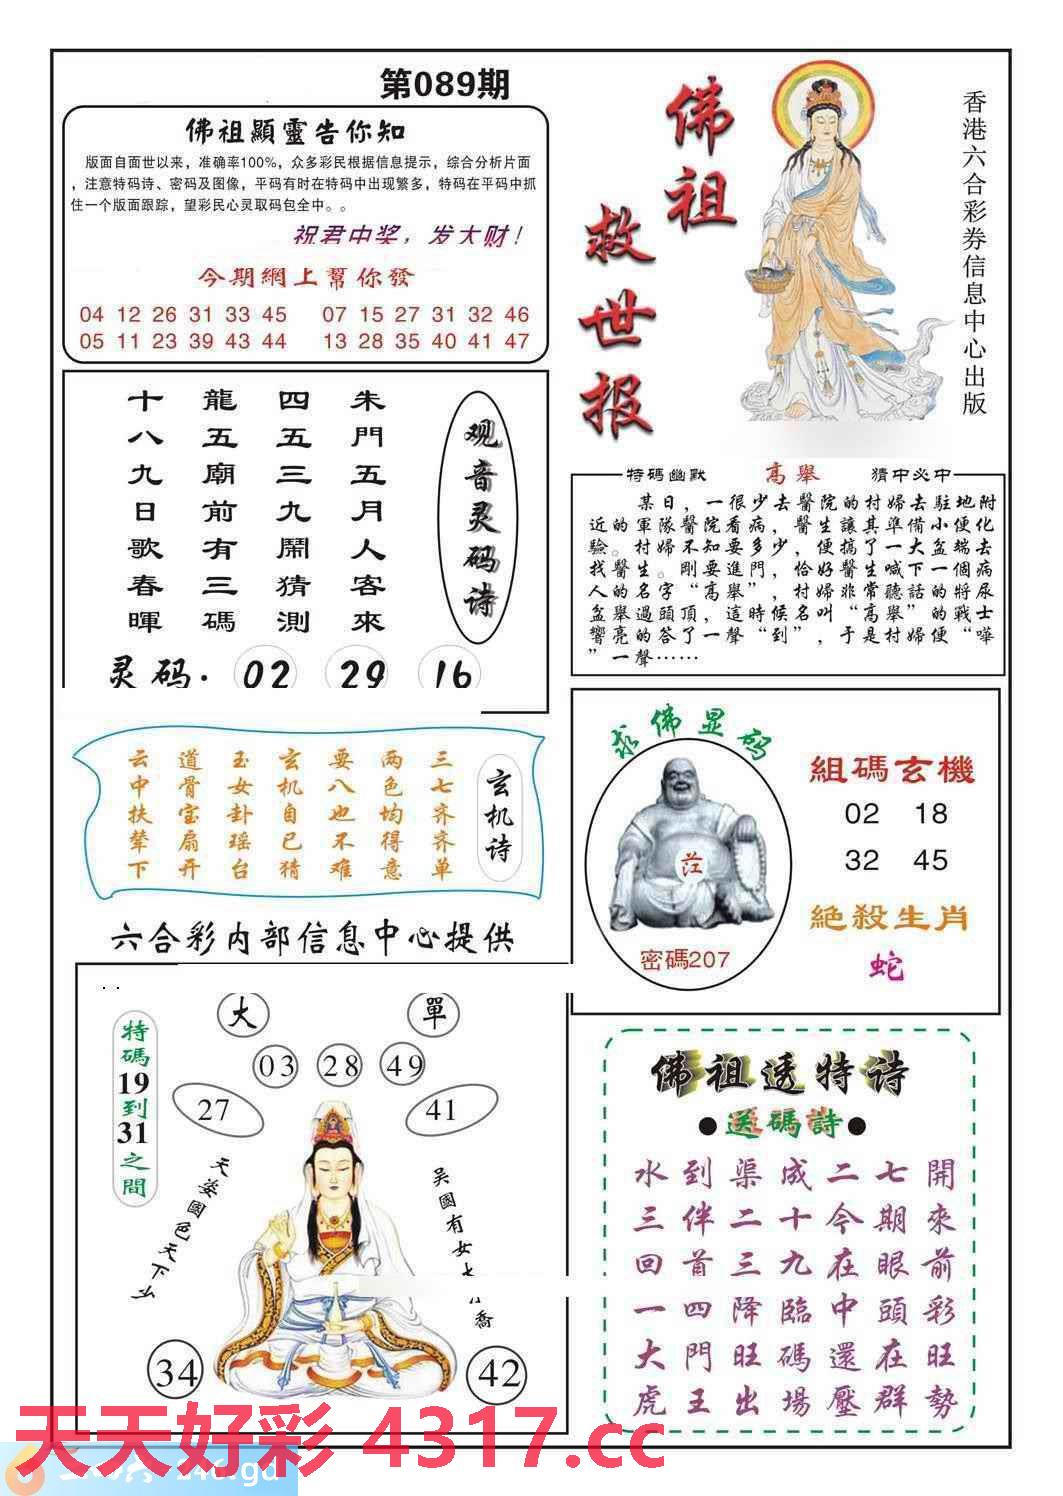 第089期
佛祖顯靈告你知
版面自面世以来，准确率100%，众多彩民根据信息提示，综合分析片面
，注意特码诗、密码及图像，平码有时在特码中出现繁多，特码在平码中抓
住一个版面跟踪，望彩民心灵取码包全中。。
祝君中奖，发大财！
今期網上幫你發
04 12 26 31 33 45 07 15 27 31 32 46
05 11 23 39 43 44 13 28 35 40 41 47
佛祖
救世报
香港六合彩券信息中心出版
观音灵码诗
朱門五月人客來
四五三九鬧猜測
龍五廟前有三碼
十八九日歌春暉
灵码. 02 29 16
特碼幽默 高舉 猜中必中
某日，一很少去醫院的村婦去駐地附
近的軍隊醫院看病，醫生讓其準備小便化
驗。村婦不知要多少，便搞了一大盆端去
找醫生。剛要進門，恰好醫生喊下一個病
人的名字“高舉”，村婦非常聽話的將尿
盆舉過頭頂，這時候名叫“高舉”的戰士
響亮的答了一聲“到”，于是村婦便“嘩
”一聲……
玄机诗
三七齐齐单
两色均得意
要八也不难
玄机自已猜
玉女卦瑶台
道骨宝扇开
云中扶辇下
求佛显码
密碼207
組碼玄機
02 18
32 45
絕殺生肖
蛇
六合彩内部信息中心提供
特碼19到31之間
大 單
03 28 49
27 41
天姿國色天下
吴國有女
喬
34 42
佛祖透特诗
●送碼詩●
水到渠成二七開
三伴二十今期來
回首三九在眼前
一四降臨中頭彩
大門旺碼還在旺
虎王出場壓群勢
天天好彩 4317.cc
246.gd